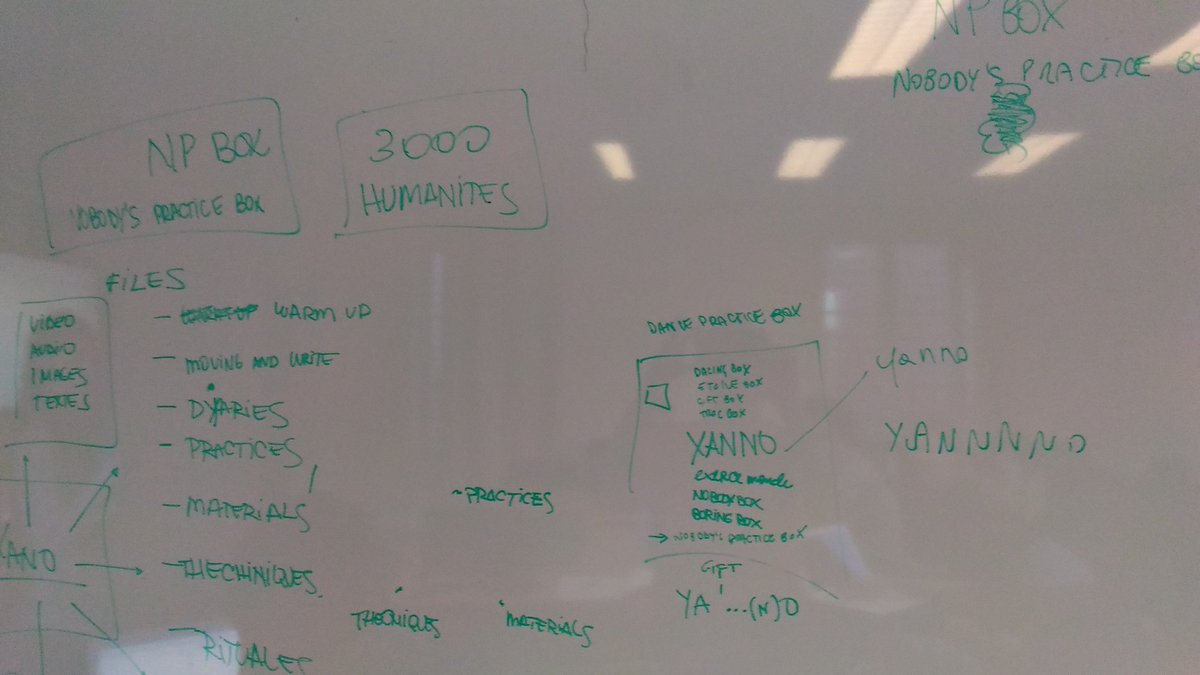 NP BOX
NOBODY'S PRACTICE BOX
3000
HUMANITES
NP BOX
NOBODY'S PRACTICE
FILES
VIDEO
AUDIO
IMAGES
TEXTES
- WARM UP
- MOVING AND WRITE
- DYARIES
- PRACTICES
- MATERIALS
- THECHINIQUES
- RITUALES
ANO
~PRACTICES
THECNIQUES
MATERIALS
DANCE PRACTICE BOX
BOX
ETOILE BOX
GIFT BOX
TROC BOX
YANNO
NOBODY BOX
BORING BOX
→ NOBODY'S PRACTICE BOX
GIFT
YA'...(N)O
yanno
YANNNNO